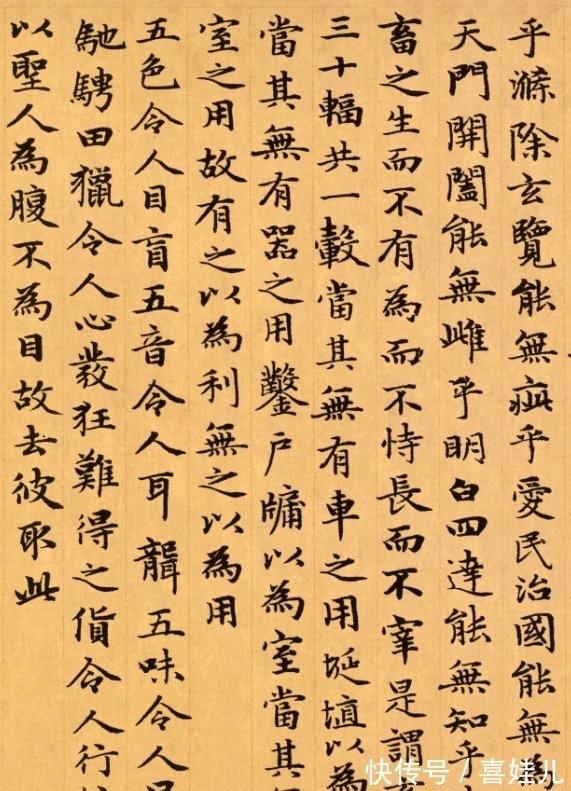 乎滌除玄覽能無疵乎愛民治國能無為
天門開闔能無雌乎明白四達能無知乎
畜之生而不有為而不恃長而不宰是謂
三十輻共一轂當其無有車之用埏埴以為
當其無有器之用鑿戶牖以為室當其
室之用故有之以為利無之以為用
五色令人目盲五音令人耳聾五味令人
馳騁田獵令人心發狂難得之貨令人行
以聖人為腹不為目故去彼取此
快传号 / 喜娃儿